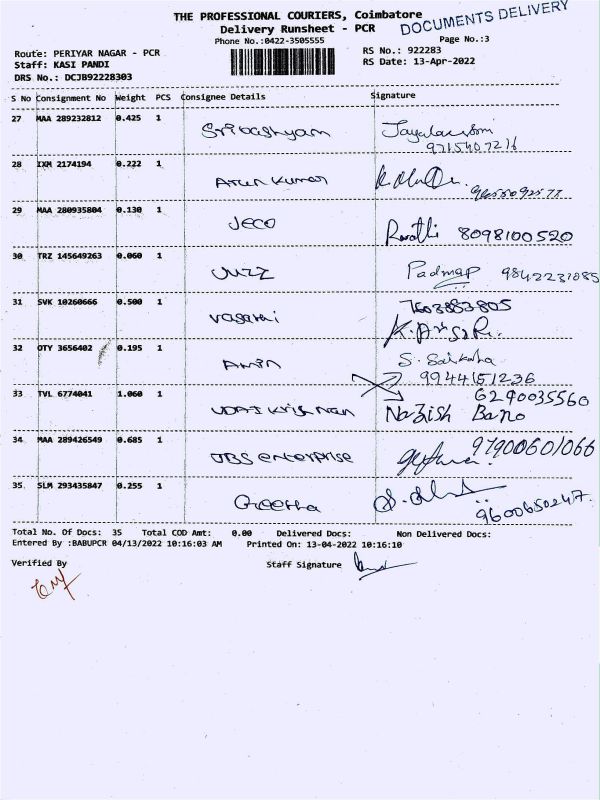 THE PROFESSIONAL COURIERS, Coimbatore
DOCUMENTS DELIVERY
Delivery Runsheet - PCR
Phone No.:0422-3505555
Page No.:3
Route: PERIYAR NAGAR - PCR
RS No.: 922283
Staff: KASI PANDI
RS Date: 13-Apr-2022
DRS No.: DCJB92228303
S No Consignment No Weight PCS Consignee Details Signature
27 MAA 289232812 0.425 1
9715407216
28 IXM 2174194 0.222 1
Arun Kumar
29 MAA 280935804 0.130 1
Jeco
8098100520
30 TRZ 145649263 0.060 1
Padmap 9842231085
31 SVK 10260666 0.500 1
7603883805
32 OTY 3656402 0.195 1
Amin
9944151236
6290035560
33 TVL 6774041 1.060 1
Udai Krishnan Nazish Bano
34 MAA 289426549 0.685 1
JBS enterprise
97900601066
35 SLM 293435847 0.255 1
Geetha
9600650247
Total No. Of Docs: 35 Total COD Amt: 0.00 Delivered Docs: Non Delivered Docs:
Entered By :BABUPCR 04/13/2022 10:16:03 AM Printed On: 13-04-2022 10:16:10
Verified By
Staff Signature